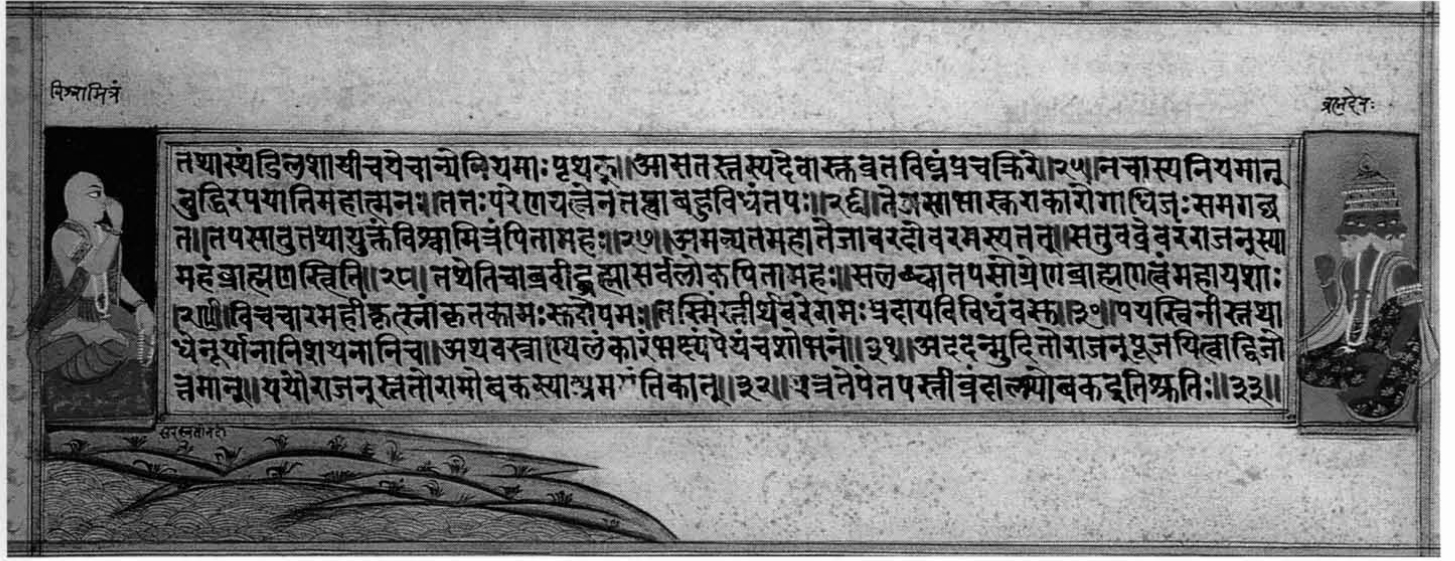 विश्वामित्रं
ब्रह्मदेवः
तथास्थंडिलशायीचयेचान्येनियमाःपृथक्॥आसतस्तस्यदेवास्तुव्रतविघ्नंप्रचक्रिरे॥२५॥नचास्यनियमान्
बुद्धिरपयातिमहात्मनः॥ततःपरेणयत्नेनतप्त्वाबहुविधंतपः॥२६॥तेजसाभास्कराकारोगाधिजःसमगच्छ
त॥तपसातुतथायुक्तंविश्वामित्रंपितामहः॥२७॥अमन्यतमहातेजावरदोवरमस्यतत्॥सतुवव्रेवरंराजन्स्या
महंब्राह्मणस्त्विति॥२८॥तथेतिचाब्रवीद्ब्रह्मासर्वलोकपितामहः॥सलब्ध्वातपसोग्रेणब्राह्मणत्वंमहायशाः
॥२९॥विचचारमहींकृत्स्नांकृतकामःसुरोपमः॥तस्मिंस्तीर्थवरेरामःप्रदायविविधंवसु॥३०॥पयस्विनीस्तथा
धेनूर्यानानिशयनानिच॥अथवस्त्राण्यलंकारंभक्ष्यंपेयंचशोभनं॥३१॥अददन्मुदितोराजन्पूजयित्वाद्विजो
त्तमान्॥ययौराजन्स्ततोरामोबकस्याश्रममंतिकात्॥३२॥यत्रतेपेतपस्तीव्रंदाल्भ्योबकइतिश्रुतिः॥३३॥
सरस्वतीनदी